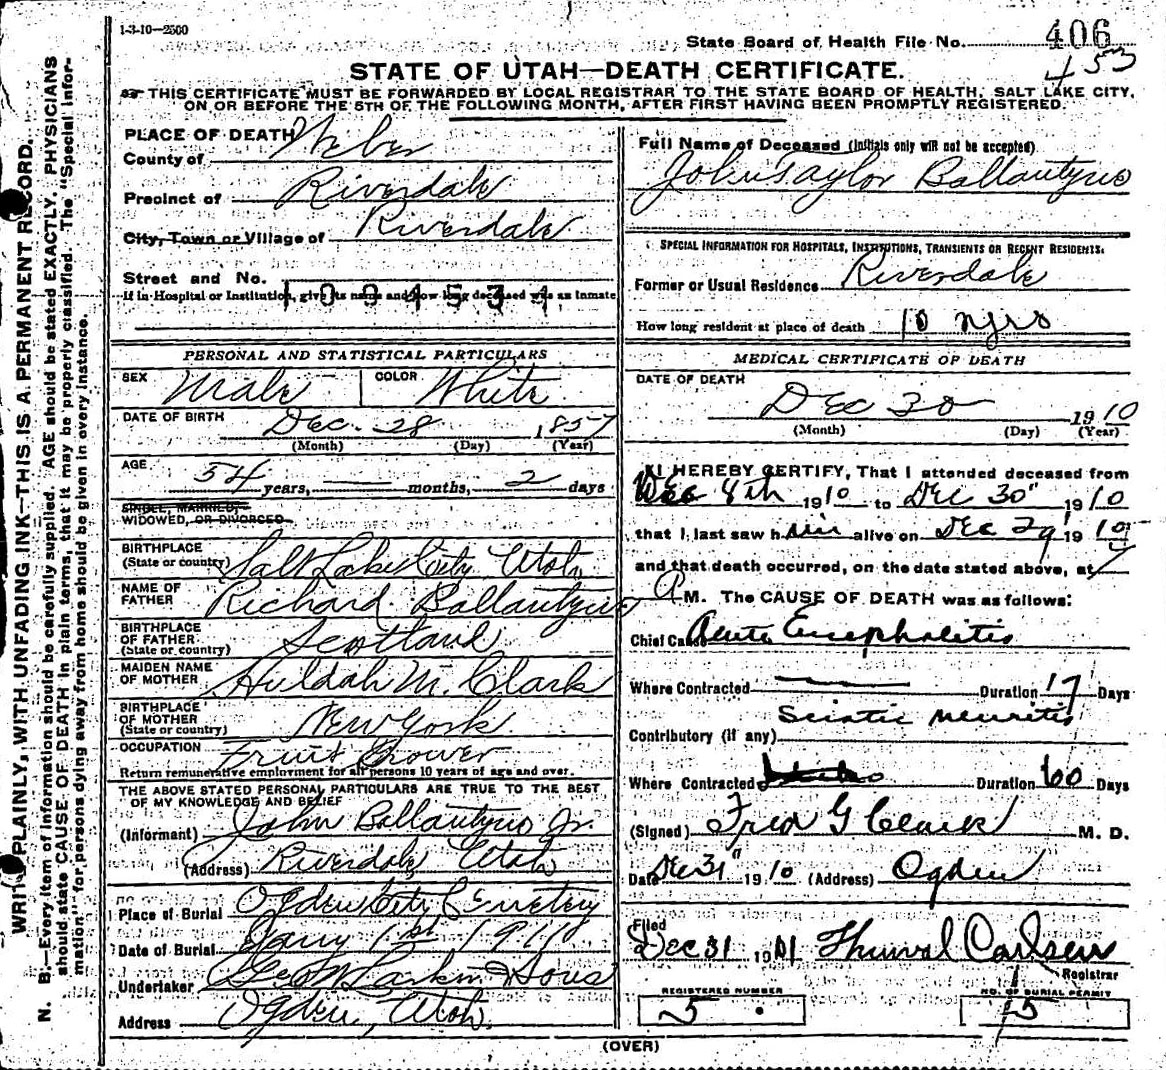 1-3-10—2500
State Board of Health File No. 406
453
STATE OF UTAH—DEATH CERTIFICATE.
THIS CERTIFICATE MUST BE FORWARDED BY LOCAL REGISTRAR TO THE STATE BOARD OF HEALTH, SALT LAKE CITY,
ON OR BEFORE THE 5TH OF THE FOLLOWING MONTH, AFTER FIRST HAVING BEEN PROMPTLY REGISTERED.
PLACE OF DEATH
County of Weber
Precinct of Riverdale
City, Town or Village of Riverdale
Street and No.
If in Hospital or Institution, give its name and how long deceased was an inmate
1094534
PERSONAL AND STATISTICAL PARTICULARS
SEX Male COLOR White
DATE OF BIRTH Dec. 28 1857
(Month) (Day) (Year)
AGE 54 years, — months, 2 days
SINGLE, MARRIED,
WIDOWED, OR DIVORCED
BIRTHPLACE
(State or country) Salt Lake City Utah
NAME OF
FATHER Richard Ballantyne
BIRTHPLACE
OF FATHER
(State or country) Scotland
MAIDEN NAME
OF MOTHER Huldah M. Clark
BIRTHPLACE
OF MOTHER
(State or country) New York
OCCUPATION Fruit Grower
Return remunerative employment for all persons 10 years of age and over.
THE ABOVE STATED PERSONAL PARTICULARS ARE TRUE TO THE BEST
OF MY KNOWLEDGE AND BELIEF
(Informant) John Ballantyne Jr.
(Address) Riverdale Utah
Place of Burial Ogden City Cemetery
Date of Burial Jany 1st 1911
Undertaker Geo W Larkin & Sons
Address Ogden, Utah.
Full Name of Deceased (Initials only will not be accepted)
John Taylor Ballantyne
SPECIAL INFORMATION FOR HOSPITALS, INSTITUTIONS, TRANSIENTS OR RECENT RESIDENTS.
Former or Usual Residence Riverdale
How long resident at place of death 10 yrs
MEDICAL CERTIFICATE OF DEATH
DATE OF DEATH
Dec 30 1910
(Month) (Day) (Year)
I HEREBY CERTIFY, That I attended deceased from
Dec 8th 1910 to Dec 30" 1910
that I last saw him alive on Dec 29 1910
and that death occurred, on the date stated above, at 7
A M. The CAUSE OF DEATH was as follows:
Chief Cause Acute Encephalitis
Where Contracted — Duration 17 Days
Sciatic neuritis
Contributory (if any)
Where Contracted Duration 60 Days
(Signed) Fred G Clark M. D.
Date Dec 31" 1910 (Address) Ogden
Filed
Dec 31 1901 Thurval Carlsen
Registrar
REGISTERED NUMBER
5
NO. OF BURIAL PERMIT
5
(OVER)
WRITE PLAINLY, WITH UNFADING INK—THIS IS A PERMANENT RECORD.
N. B.—Every item of information should be carefully supplied. AGE should be stated EXACTLY. PHYSICIANS
should state CAUSE OF DEATH in plain terms, that it may be properly classified. The "Special Infor-
mation" for persons dying away from home should be given in every instance.